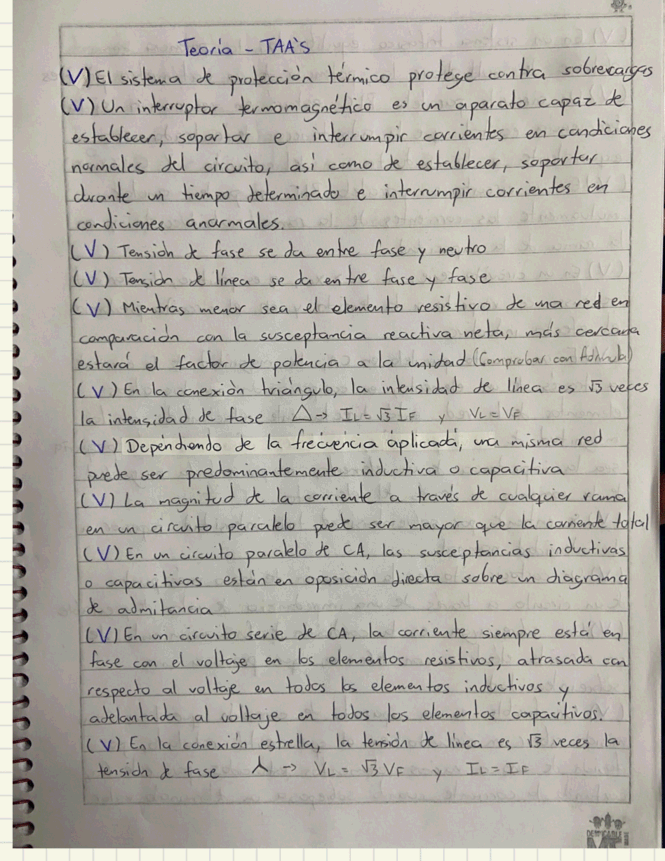 Teoría - TAA's
(V) El sistema de protección térmico protege contra sobrecargas
(V) Un interruptor termomagnético es un aparato capaz de
establecer, soportar e interrumpir corrientes en condiciones
normales del circuito, así como de establecer, soportar
durante un tiempo determinado e interrumpir corrientes en
condiciones anormales.
(V) Tensión de fase se da entre fase y neutro
(V) Tensión de línea se da entre fase y fase
(V) Mientras menor sea el elemento resistivo de una red en
comparación con la susceptancia reactiva neta, más cercana
estará el factor de potencia a la unidad (Comprobar con fórmula)
(V) En la conexión triángulo, la intensidad de línea es √3 veces
la intensidad de fase Δ→ IL = √3 IF y VL = VF
(V) Dependiendo de la frecuencia aplicada, una misma red
puede ser predominantemente inductiva o capacitiva
(V) La magnitud de la corriente a través de cualquier rama
en un circuito paralelo puede ser mayor que la corriente total
(V) En un circuito paralelo de CA, las susceptancias inductivas
o capacitivas están en oposición directa sobre un diagrama
de admitancia
(V) En un circuito serie de CA, la corriente siempre está en
fase con el voltaje en los elementos resistivos, atrasada con
respecto al voltaje en todos los elementos inductivos y
adelantada al voltaje en todos los elementos capacitivos.
(V) En la conexión estrella, la tensión de línea es √3 veces la
tensión de fase ⅄ → VL = √3 VF y IL = IF